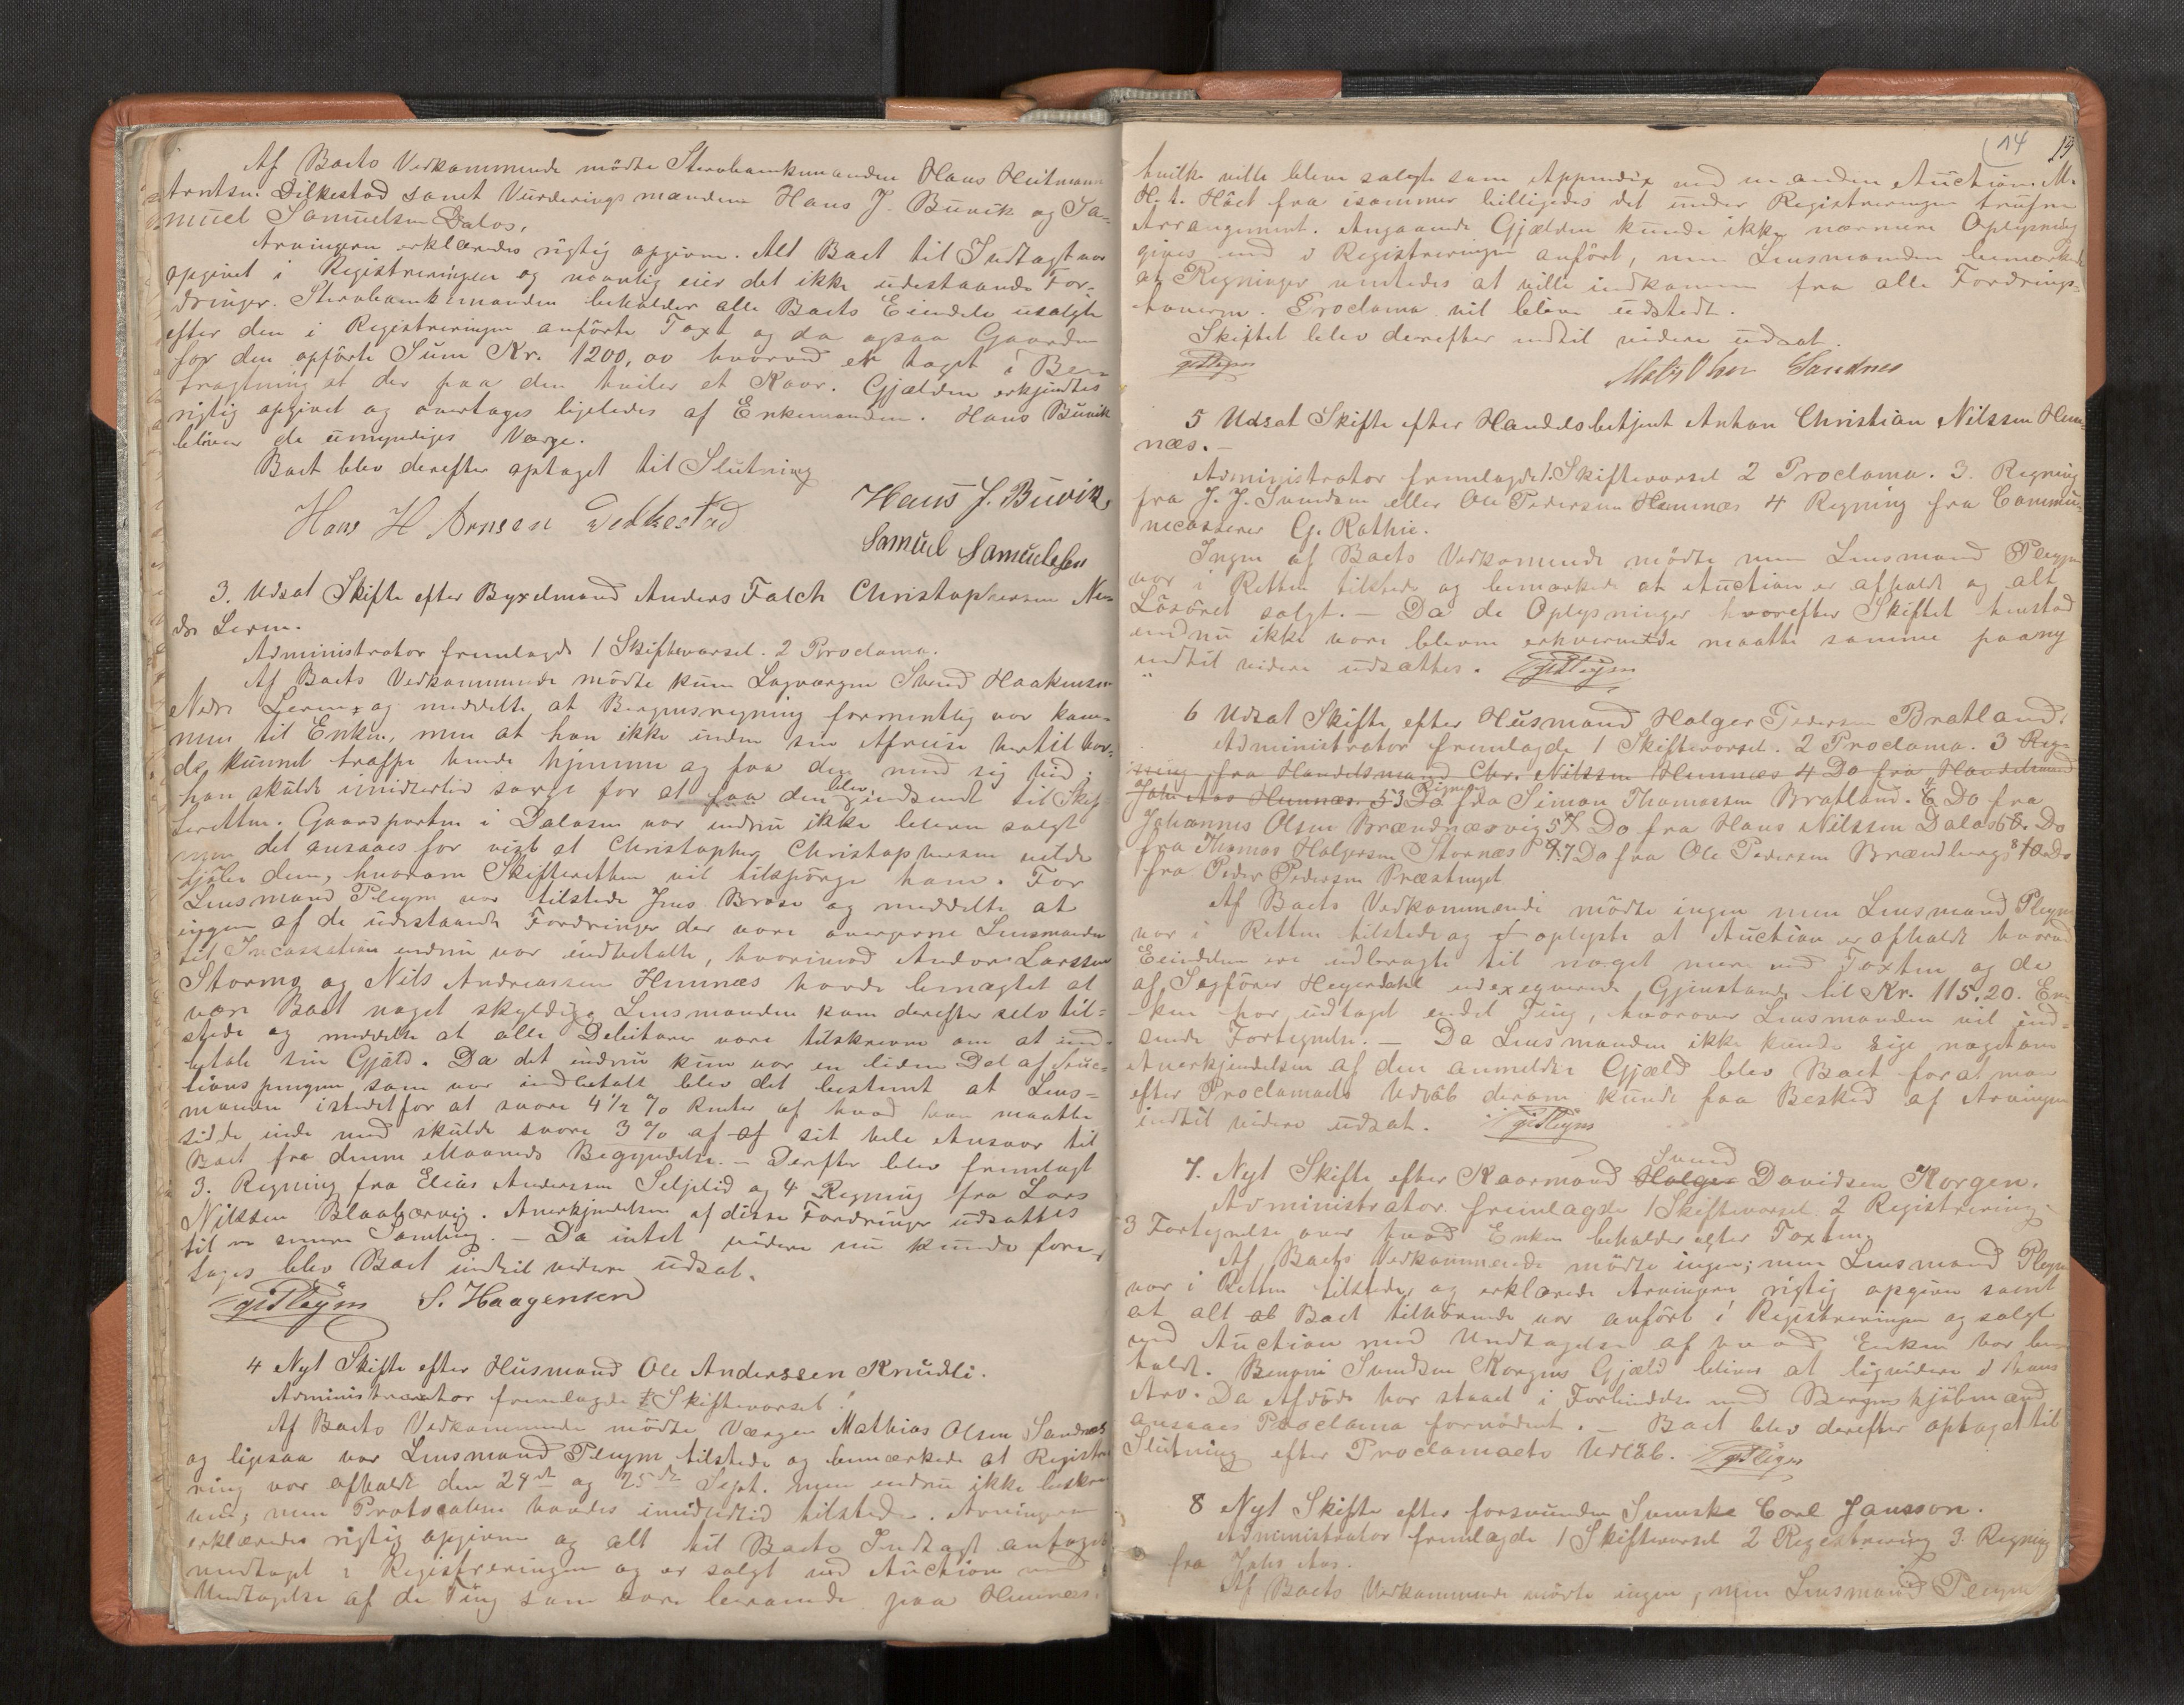 Af Boets Vedkommende mödte Stervboenkemanden Hans Hutmann
Arntsen Silkestad samt Vurderingsmændene Hans J. Buvik og Sa-
muel Samuelsen Dalos,
Arvingerne erklæredes rigtig opgivne. Alt Boet til Indtægt var
opgivet i Registreringen og navnlig eier det ikke udestaaende For-
dringer. Stervboenkemanden beholder alle Boets Eiendele usolgte
efter den i Registreringen anförte Taxt og da ogsaa Gaarden
for den opförte Sum Kr. 1200,00 hvorved er taget i Be-
tragtning at der paa den hviler et Kaar. Gjælden erkjendtes
rigtig opgivet og overtages ligeledes af Enkemanden. Hans Buvik
bliver de umyndiges Værge.
Boet blev derefter optaget til Slutning
Hans J. Buvik
Hans H Arnsen
Samuel Samuelsen
3. Udsat Skifte efter Byxelmand Anders Falch Christophersen Ne-
dre Leren.
Administrator fremlagde 1 Skiftevarsel. 2 Proclama.
Af Boets Vedkommende mödte kun Lagværgen Svend Haakensen
Nedre Leren, og meddelte at Bergensregning formentlig var kom-
men til Enken, men at han ikke inden sin Afreise hertil hav-
de kunnet træffe hende hjemme og faa den med sig hid;
han skulde imidlertid sørge for at faa den blev indsendt til Skif-
teretten. Gaardparten i Dalosen var endnu ikke bleven solgt
men det ansaaes for vist at Christopher Christophersen vilde
kjöbe den, hvorom Skifteretten vil tilspörge ham. For
Lensmand Pleym var tilstede Jens Brose og meddelte at
ingen af de udestaaende Fordringer der vare overgivne Lensmanden
til Incassation endnu var indbetalte, hvorimod Andor Larssen
Storm og Nils Andreassen Hemnæs havde benægtet at
være Boet noget skyldig. Lensmanden kom derefter selv til-
stede og meddelte at alle Debitorer vare tilskrevne om at ind-
betale sin Gjæld. Da det endnu kun var en liden Del af Auc-
tionspengene som var indbetalt blev det bestemt at Lens-
manden istedetfor at svare 4½ % Renter af hvad han maatte
sidde inde med skulde svare 3 % af af sit hele Ansvar til
Boet fra denne Maaneds Begyndelse. – Derefter blev fremlagt
3. Regning fra Elias Anderssen Seljelid og 4 Regning fra Lars
Nilssen Blaabærvig. Anerkjendelsen af disse Fordringer udsattes
til en senere Samling. – Da intet videre nu kunde fore-
tages blev Boet indtil videre udsat.
S. Haagensen
4 Nyt Skifte efter Husmand Ole Anderssen Knudli.
Administrator fremlagde 1 Skiftevarsel.
Af Boets Vedkommende mödte Værgen Mathias Olsen Sandnes
og ligesaa var Lensmand Pleym tilstede og bemærkede at Registre
ring var afholdt den 24de og 25de Sept. men endnu ikke beskre-
ven; men Protocollen havdes imidlertid tilstede. Arvingerne
erklæredes rigtig opgivne og alt til Boets Indtægt antages
medtaget i Registreringen og er solgt ved Auction med
Undtagelse af de Ting som vare beroende paa Hemnes.
14 19
hvilke ville blive solgte som Appendix ved en anden Auction. M.
H. t. Höet fra isommer billigedes det under Registreringen trufne
Arrangement. Angaaende Gjælden kunde ikke nærmere Oplysning
gives end i Registreringen anfört, men Lensmanden bemærkede
at Regninger ventedes at ville indkomme fra alle Fordrings-
haverne. Proclama vil blive udstedt.
Skiftet blev derefter indtil videre udsat.
Sandnes
5 Udsat Skifte efter Handelsbetjent Anton Christian Nilssen Hem-
næs. –
Administrator fremlagde 1. Skiftevarsel 2 Proclama. 3. Regning
fra J. J. Svendsen eller Ole Pedersen Hemnæs 4 Regning fra Commu-
necasserer G. Rathie.
Ingen af Boets Vedkomende mödte men Lensmand Pleym
var i Retten tilstede og bemærkede at Auction er afholdt og alt
Lösöret solgt. – Da de Oplysninger hvorefter Skiftet henstod
endnu ikke vare blevne erhvervede maatte samme paany
indtil videre udsættes.
6 Udsat Skifte efter Husmand Holger Pedersen Bratland.
Administrator fremlagde 1 Skiftevarsel. 2 Proclama. 3 Reg-
ning fra Handelsmand Chr. Nilssen Hemnæs 4 Do fra Handelsmand
Johs Aas Hemnæs. 5 3 Do Regning fra Simon Thomassen Bratland. 6 Do fra
Johannes Olsen Brændnæsvig 5 7 Do fra Hans Nilssen Dalos 6 8. Do
fra Thomas Holgersen Stornæs 9 7 Do fra Ole Pedersen Brændberg 8 10 Do
fra Peder Pedersen Præstenget
Af Boets Vedkommende mödte ingen men Lensmand Pleym
var i Retten tilstede og oplyste at Auction er afholdt hvorved
Eiendelene ere udbragte til noget mere end Taxten og de
af Sagförer Heyerdahl udexeqverede Gjenstande til Kr. 115,20. En-
ken har udtaget endel Ting, hvorover Lensmanden vil ind-
sende Fortegnelse. – Da Lensmanden ikke kunde sige noget om
Anerkjendelsen af den anmeldte Gjæld blev Boet forat man
efter Proclamaets Udløb derom kunde faa Besked af Arvingerne
indtil videre udsat.
7. Nyt Skifte efter Kaarmand Holger Svend Davidsen Korgen.
Administrator fremlagde 1 Skiftevarsel 2 Registrering.
3 Fortegnelse over hvad Enken beholder efter Taxten.
Af Boets Vedkommende mödte ingen; men Lensmand Pleym
var i Retten tilstede, og erklærede Arvingerne rigtig opgivne samt
at alt ab Boet tilhörende var anfört i Registreringen og solgt
ved Auction med Undtagelse af hvad Enken har be-
holdt. Benoni Svendsen Korgens Gjæld bliver at liqvidere i hans
Arv. Da Afdöde har staaet i Forbindelse med Bergens kjöbmænd
ansaaes Proclama fornödent. – Boet blev derefter optaget til
Slutning efter Proclamaets Udløb.
8 Nyt Skifte efter forsvundne Svenske Carl Jansson.
Administrator fremlagde 1 Skiftevarsel 2 Registrering 3. Regning
fra Johs Aas.
Af Boets Vedkommende mödte ingen, men Lensmand Pleym